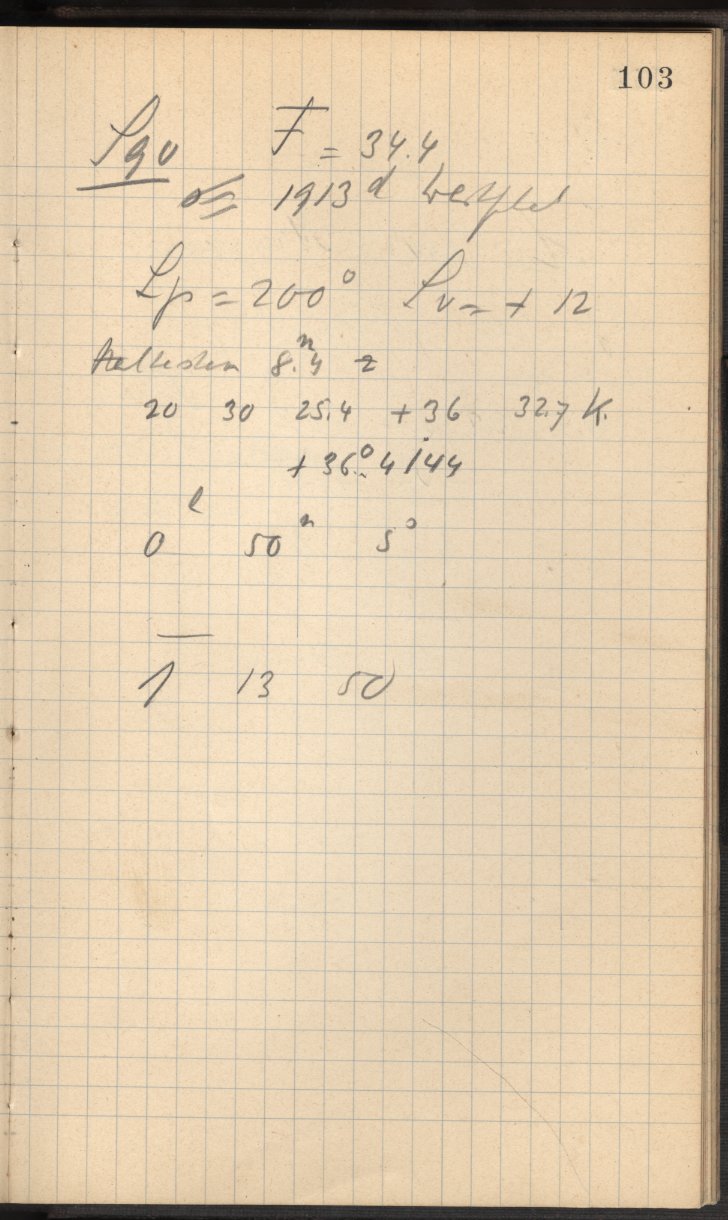 103
S90 F = 34.4
1913 d Westphal
Lp = 200° Sv = + 12
Haltestern 8.ᵐ4
20 30 25.4 + 36 32.7 K.
+ 36° 4144
0 50ᵐ 5°
1 13 50